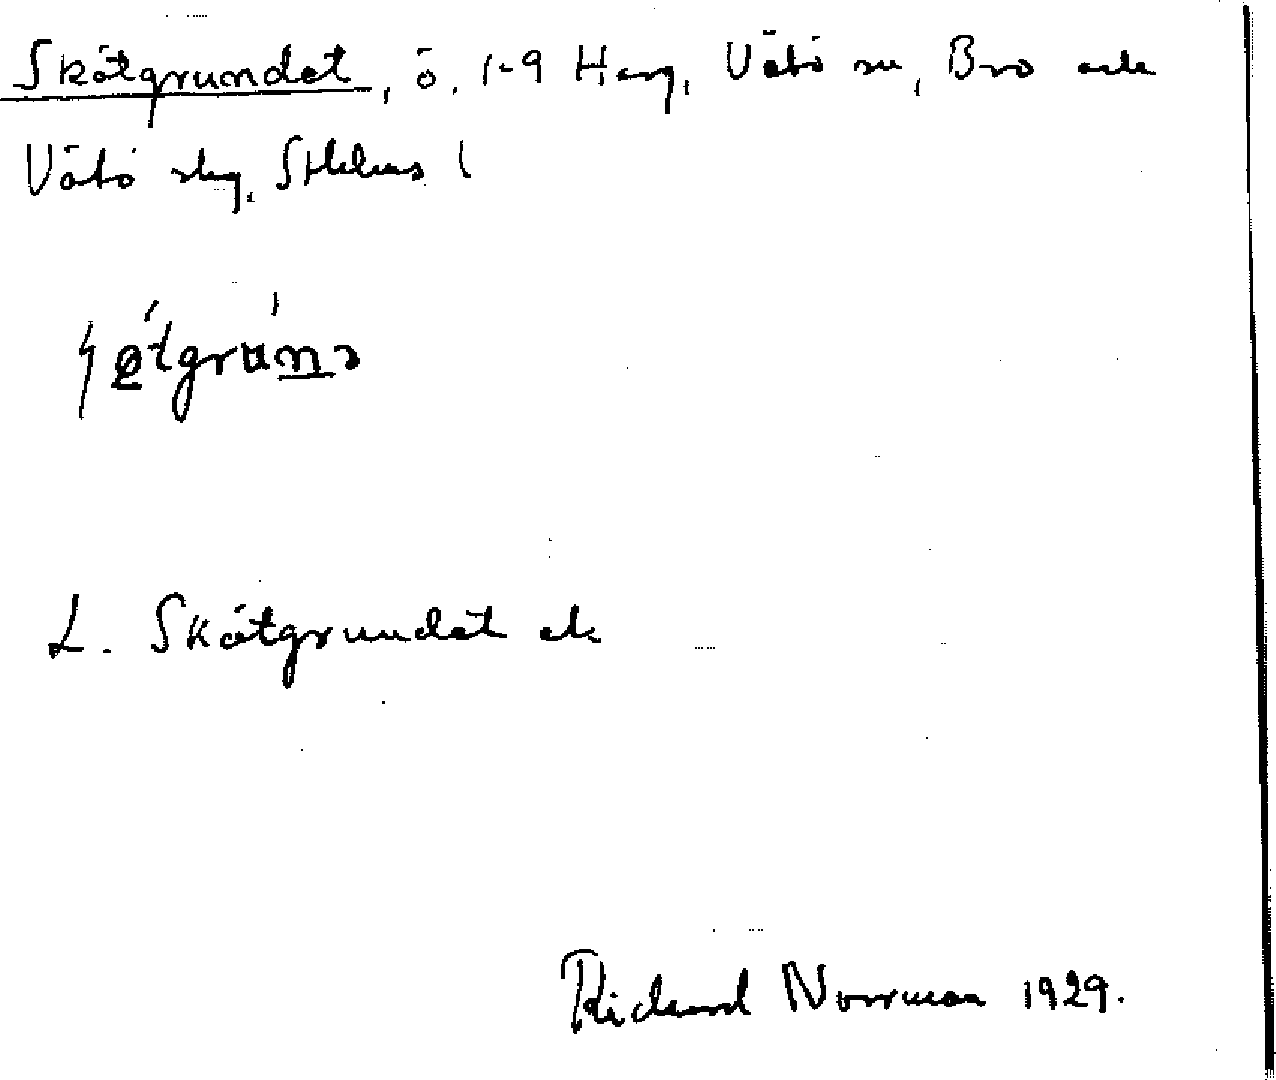 Skötgrundet, ö, 1-9 Harg, Vätö sn, Bro och
Vätö slg, Sthlms l
L. Skötgrundet ek
Rickard Norrman 1929.